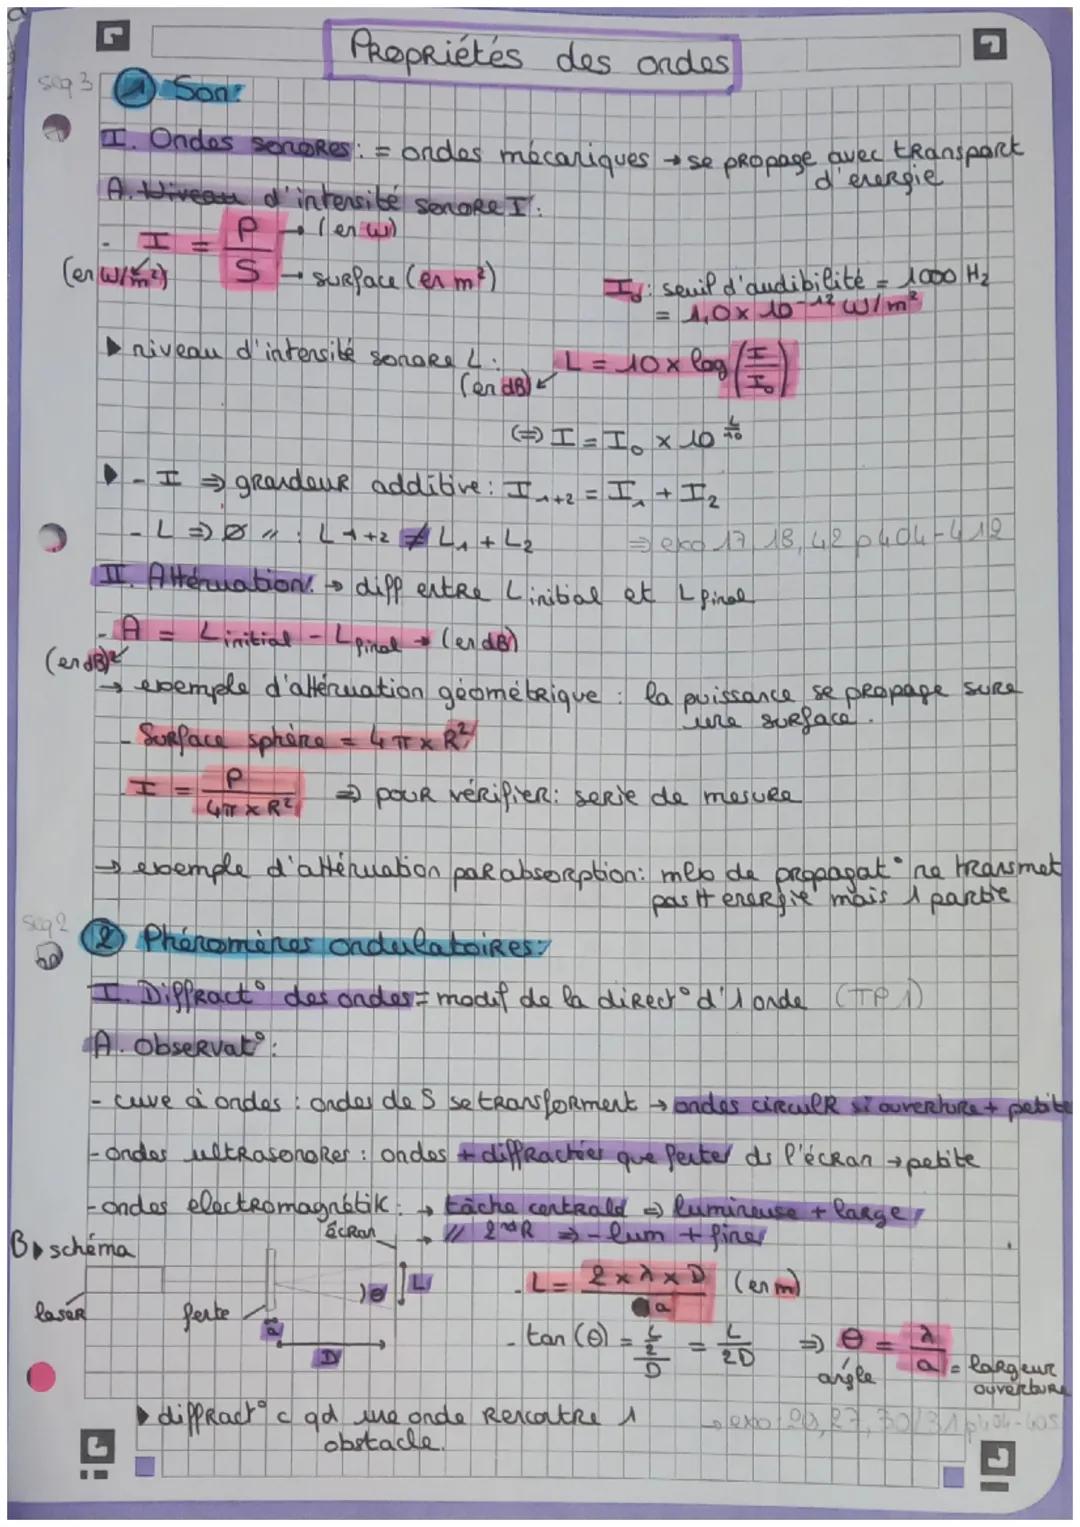 Propriétés des ondes
seq 3
① Son:
I. Ondes sonores: = ondes mécaniques → se propage avec transport
d'énergie
A. Niveau d'intensité sonore I:
- I = P/S → (en W)
(en W/m²) → surface (en m²)
I₀: seuil d'audibilité = 1000 Hz
= 1,0 × 10⁻¹² W/m²
▶ niveau d'intensité sonore L: L = 10 × log (I/I₀)
(en dB)
(⇔) I = I₀ × 10^(L/10)
▶ - I ⇒ grandeur additive: I₁₊₂ = I₁ + I₂
- L ⇒ Ø // : L 1+2 ≠ L₁ + L₂
⇒ exo 17, 18, 42 p404-412
II. Atténuation: → diff entre L initial et L final
- A = L initial - L final → (en dB)
(en dB)
→ exemple d'atténuation géométrique : la puissance se propage sure
une surface.
- Surface sphère = 4π × R²
I = P/(4π × R²) ⇒ pour vérifier: serie de mesure
→ exemple d'atténuation par absorption: de propagat° ne transmet
pas tt energie mais 1 partie
seq 2
② Phénomènes ondulatoires:
I. Diffract° des ondes = modif de la direct° d'1 onde (TP1)
A. Observat°:
- cuve à ondes : ondes de S se transforment → ondes circulR si ouverture + petite
- ondes ultrasonores : ondes + diffractées que fentes ds l'écran → petite
- ondes electromagnétik : → tâche centrale ⇒ lumineuse + large
→ // 2ndR ⇒ - lum + fines
B▶ schéma
Écran
laser
fente
a
D
θ
L
- L = (2 × λ × D)/a (en m)
- tan (θ) = (L/2)/D = L/2D ⇒ θ = λ/a = largeur
ouverture
angle
▶ diffract° c qd une onde rencontre 1
obstacle.
→ exo: 29, 27, 30/31 p404-405